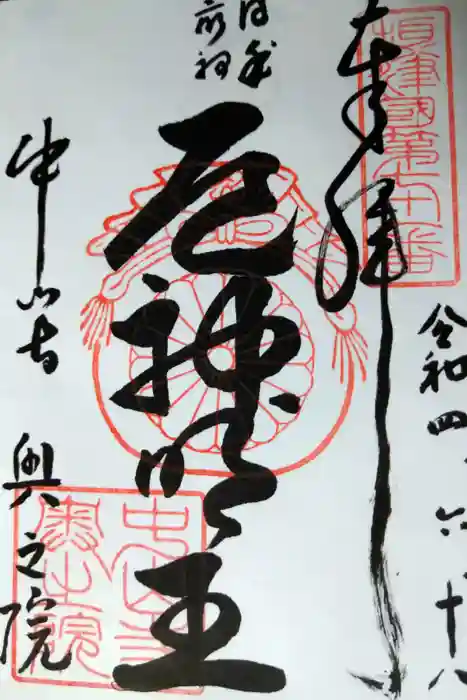 奉拝
摂津國第七十一番
令和四、六、十八
日本
最初
厄神明王
中山寺 奥之院
中山寺
奥之院